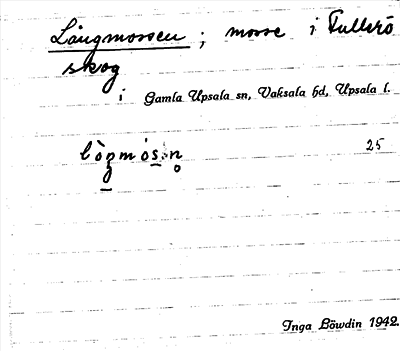 Långmossen ; mosse i Fullerö
skog
i Gamla Upsala sn, Vaksala hd, Upsala l.
25
Inga Löwdin 1942.